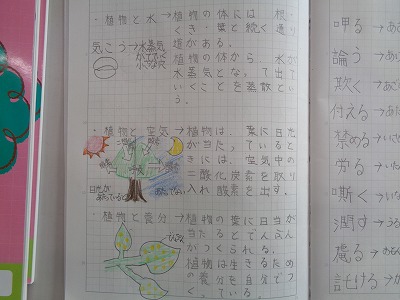 ・植物と水→植物の体には、根・
くき・葉と続く通り
道がある。
気こう→水蒸気
植物の体から、水が
水蒸気となって出て
いくことを蒸散とい
う。
・植物と空気→植物は、葉に日光
が当たっていると
きには、空気中の
二酸化炭素を取り
入れ酸素を出す。
日光が
当たっていると
・植物と養分→植物の葉に日当が
当たるとでんぷん
がつくられる。
植物は生きるため
の養分を自分でつ
くっている
呷る→あお
論う→あげ
欺く→あざ
付える→
禁める→い
労る→いた
嘶く→いな
潤す→うる
訛ける→